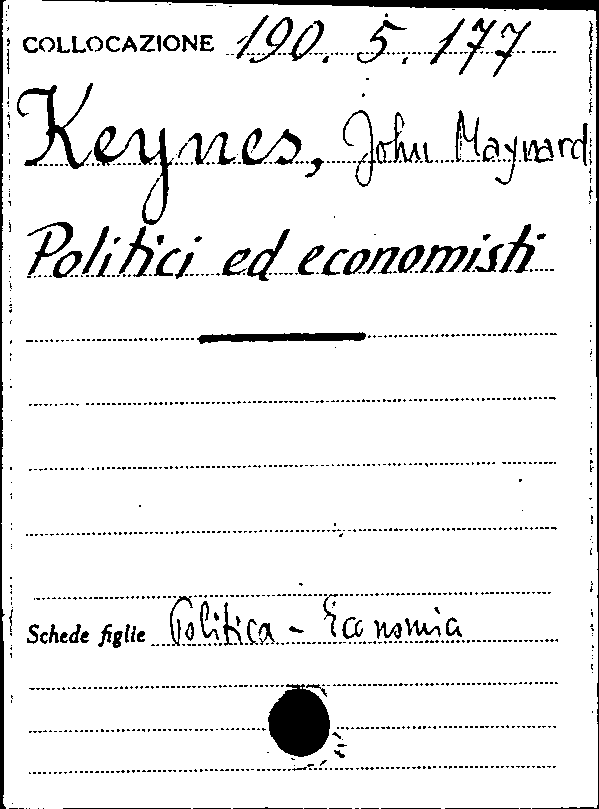 COLLOCAZIONE 190. 5. 177
Keynes, John Maynard
Politici ed economisti
Schede figlie Politica - Economia